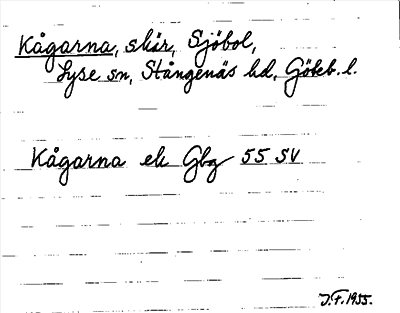 Kågarna, skär, Sjöbol,
Lyse sn, Stångenäs hd, Göteb. l.
Kågarna ek Gbg 55 SV
J.F. 1955.